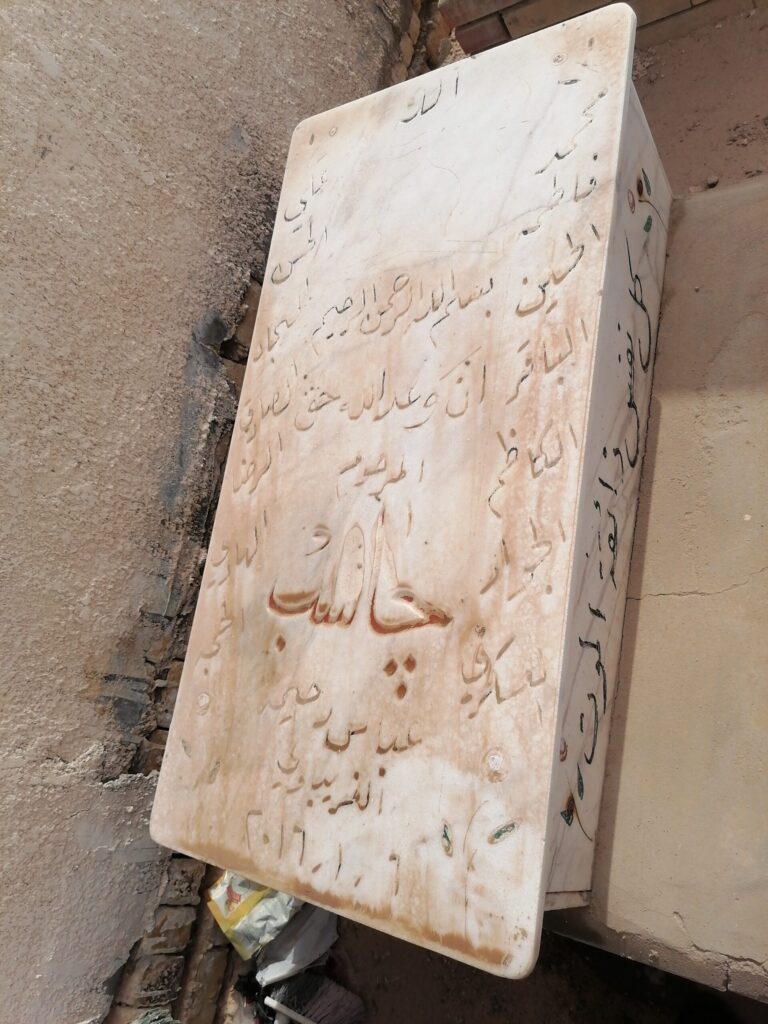 الله
محمد علي
فاطمة الحسن
الحسين السجاد
بسم الله الرحمن الرحيم
الباقر الصادق
ان وعد الله حق
الكاظم الرضا
المرحوم
الجواد الهادي
چاسب
العسكري الحجة
عباس رحيمه
الغريباوي
٢٠١٦.١.٦
كل نفس ذائقة الموت